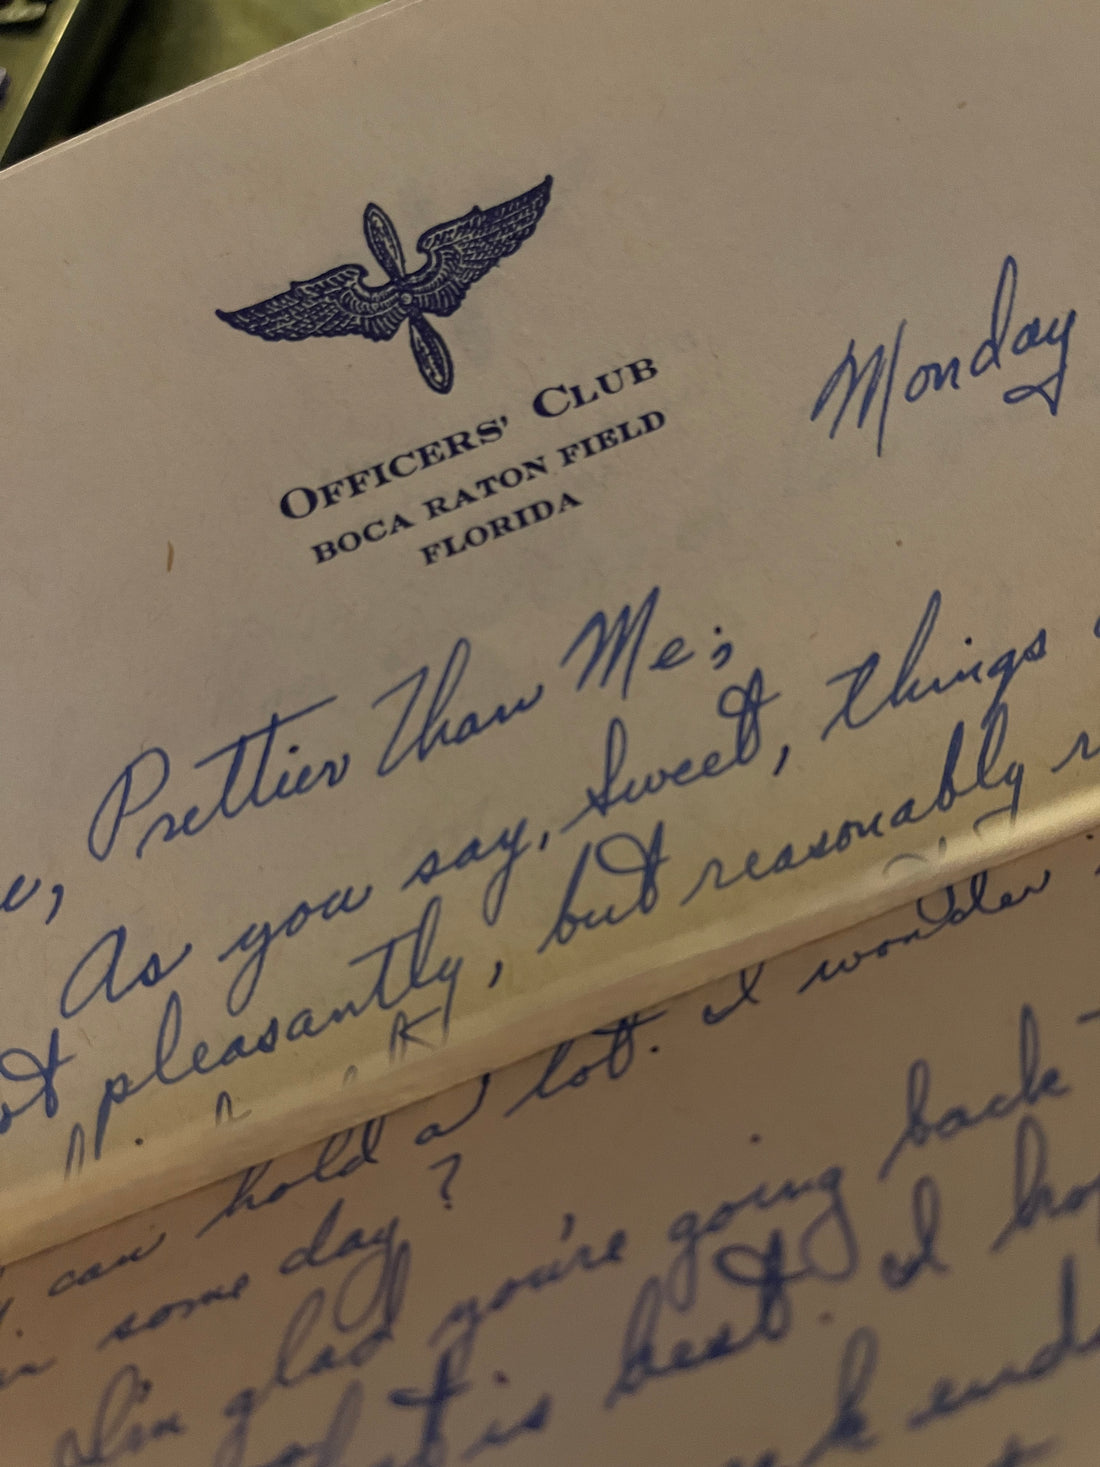 Officers' Club
BOCA RATON FIELD
FLORIDA
Monday
Prettier Than Me;
As you say, Sweet, things
pleasantly, but reasonably
can hold a lot. I wonder
some day?
I'm glad you're going back
is best. I